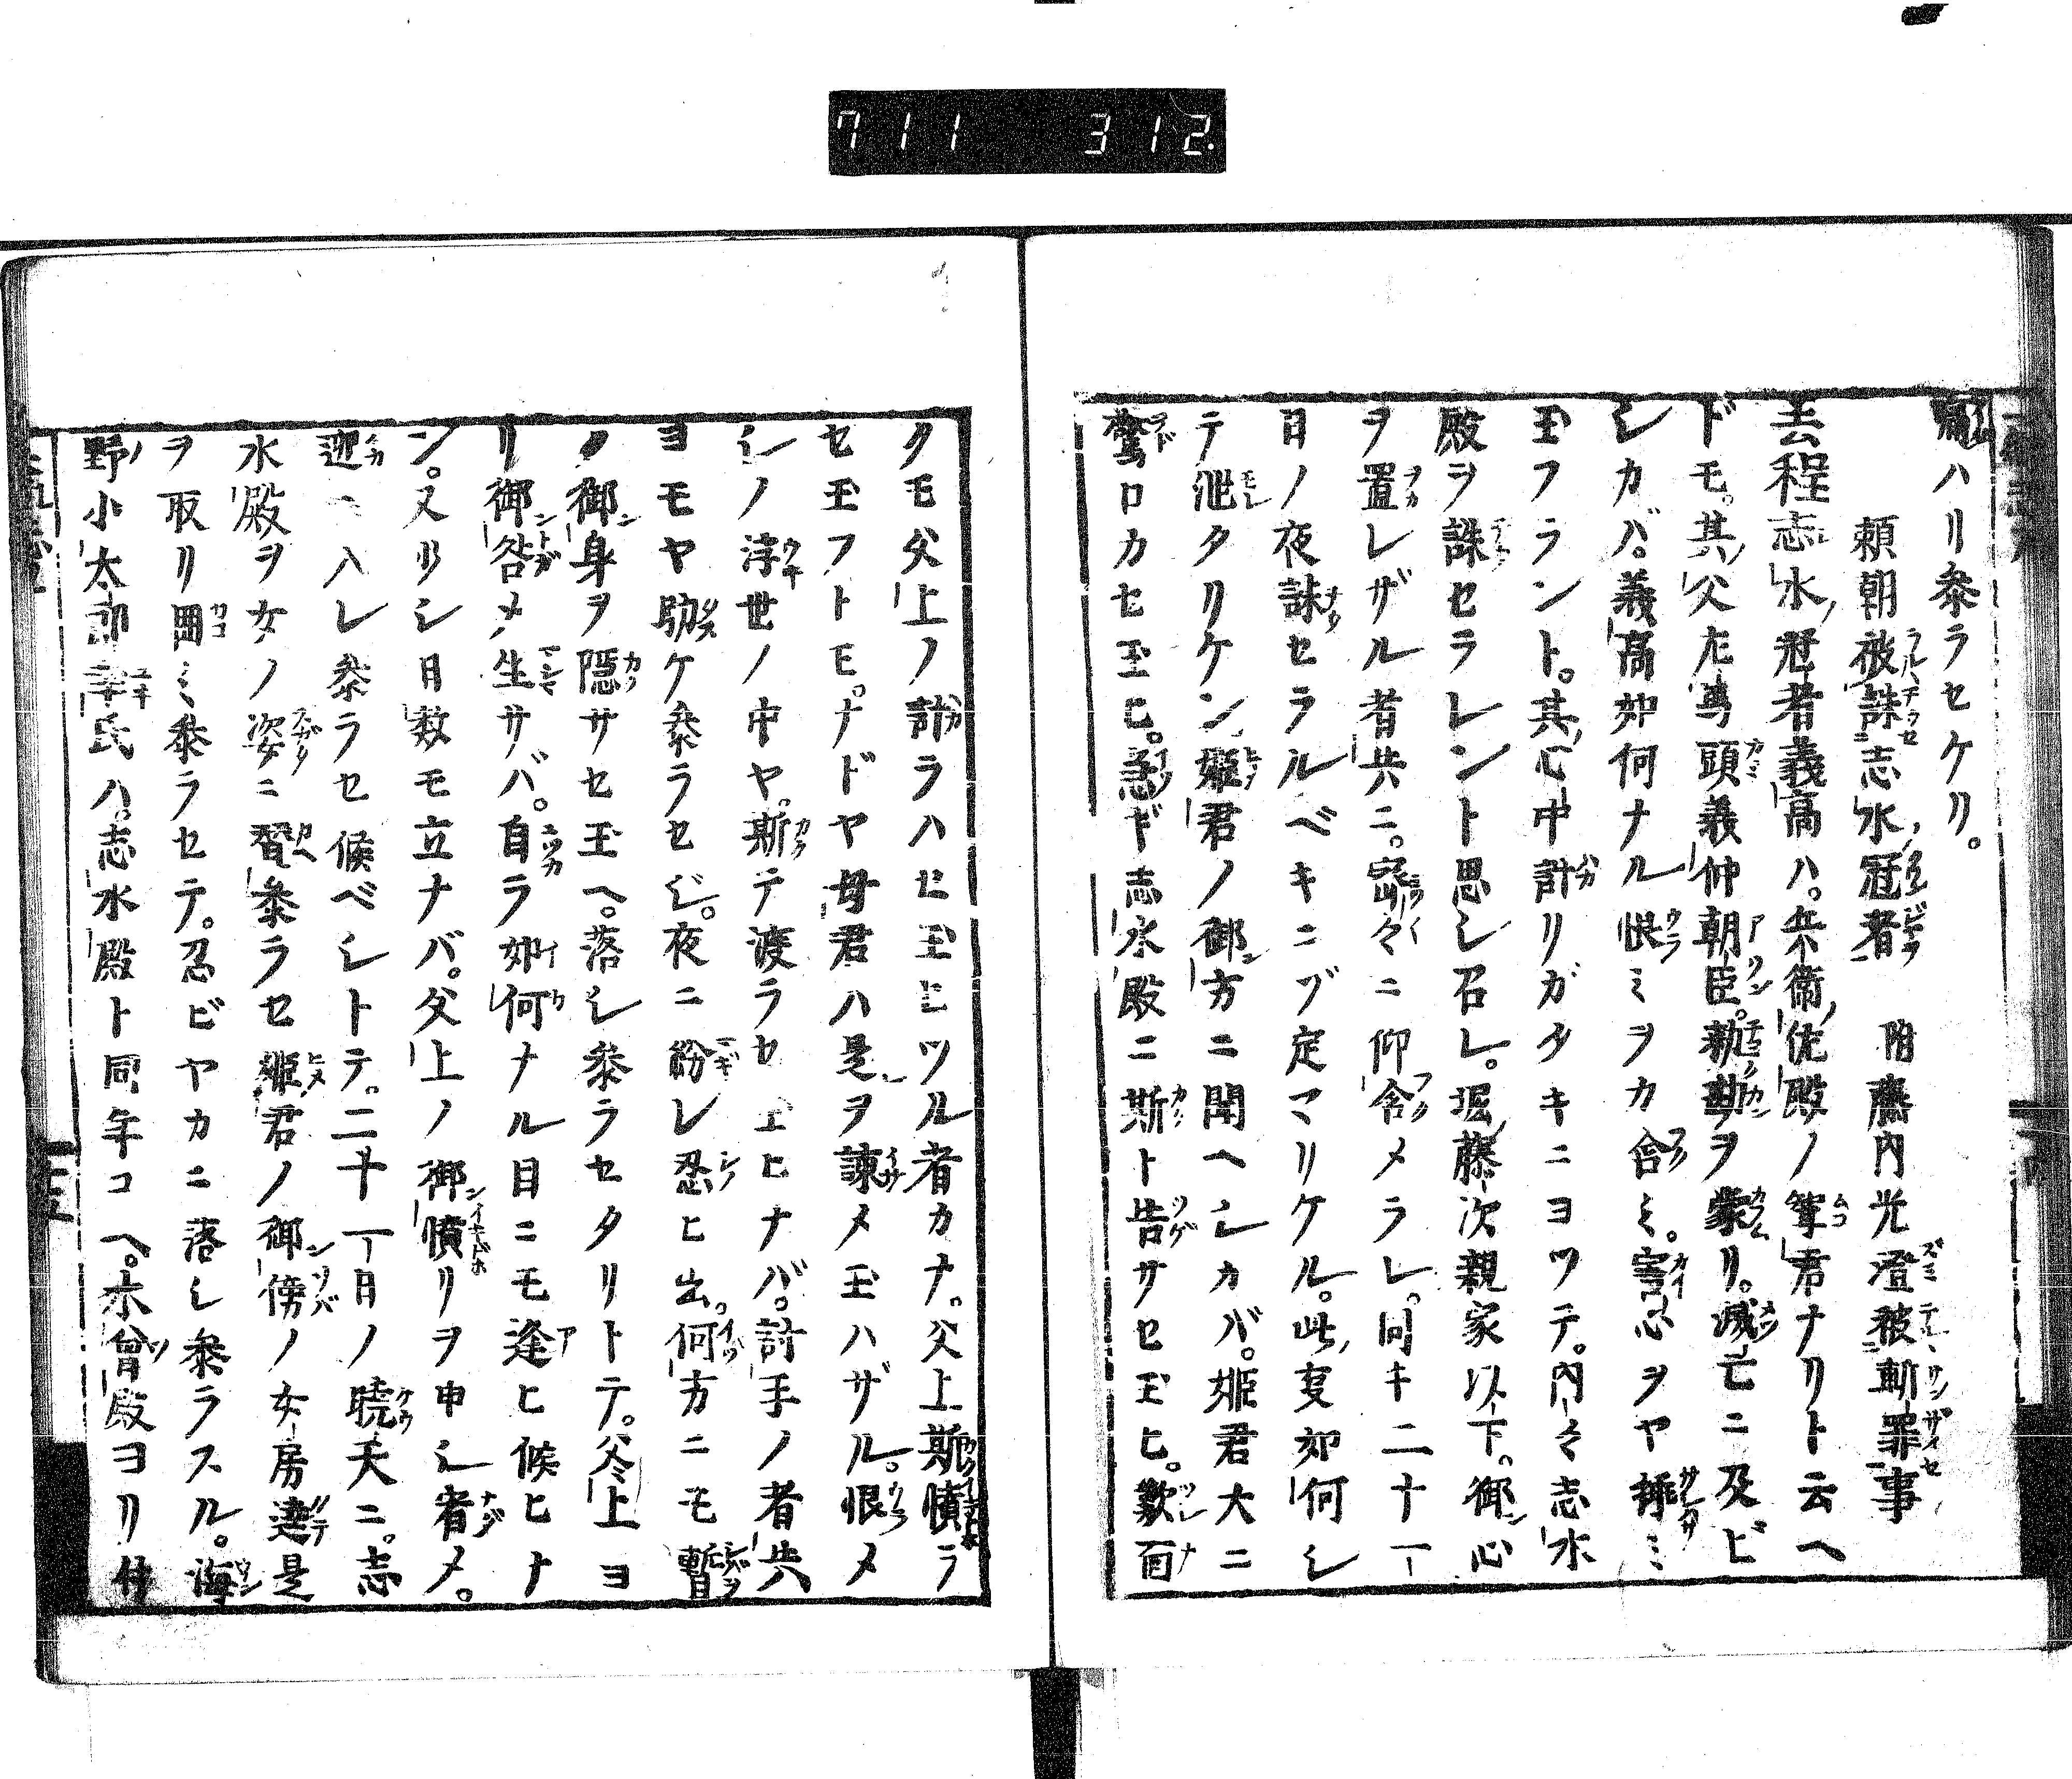 711 312.
ハリ参ラセケリ。
頼朝被誅志水冠者 附藤内光澄被斬罪事
去程志水冠者義高ハ。兵衛佐殿ノ聟君ナリト云ヘ
ドモ。其父左馬頭義仲朝臣。勅勘ヲ蒙リ。滅亡ニ及ビ
シカバ。義高如何ナル恨ミヲカ含ミ。害心ヲヤ挿ミ
玉フラント。其心中計リガタキニヨツテ。内々志水
殿ヲ誅セラレント思シ召レ。堀藤次親家以下。御心
ヲ置レザル者共ニ。密々ニ仰含メラレ。同キ二十一
日ノ夜誅セラルベキニゾ定マリケル。此事如何シ
テ泄タリケン。姫君ノ御方ニ聞ヘシカバ。姫君大ニ
驚ロカセ玉ヒ。急ギ志水殿ニ斯ト告サセ玉ヒ。歎面
クモ父上ノ計ラハセ玉ヒツル者カナ。父上斯憤ラ
セ玉フトモ。ナドヤ母君ハ是ヲ諫メ玉ハザル。恨メ
シノ浮世ノ中ヤ。斯テ渡ラセ玉ヒナバ。討手ノ者共
ヨモヤ助ケ参ラセジ。夜ニ紛レ忍ヒ出。何方ニモ暫
ク御身ヲ隠サセ玉ヘ。落シ参ラセタリトテ。父上ヨ
リ御咎メ生サバ。自ラ如何ナル目ニモ逢ヒ候ヒナ
ン。又リシ日数モ立ナバ。父上ノ御憤リヲ申シ者メ。
迎ヘ入レ参ラセ候ベシトテ。二十一日ノ暁天ニ。志
水殿ヲ女ノ姿ニ習参ラセ姫君ノ御傍ノ女房達是
ヲ取リ囲ミ参ラセテ。忍ビヤカニ落シ参ラスル。海
野小太郎幸氏ハ。志水殿ト同年コヘ。木曾殿ヨリ付